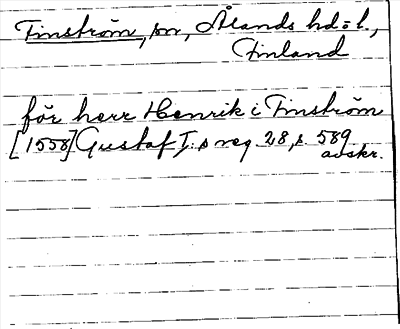 Finström, sn, Ålands hd o l.,
Finland
för herr Henrik i Finström
[1558] Gustaf I:s reg. 28, s. 589
avskr.